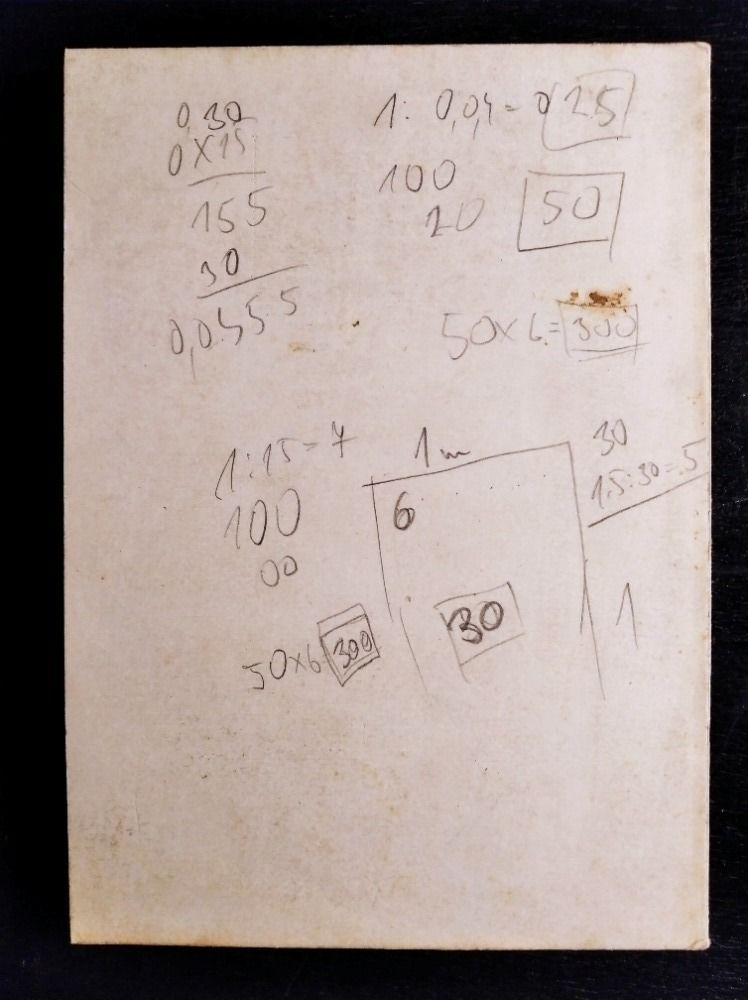 0,30
0X15
155
30
0,0455
1: 0,04=0 25
100
20 50
50x6=300
1:15=7
100
00
50x6 300
1m
6
30
30
1.5:30=.5
1